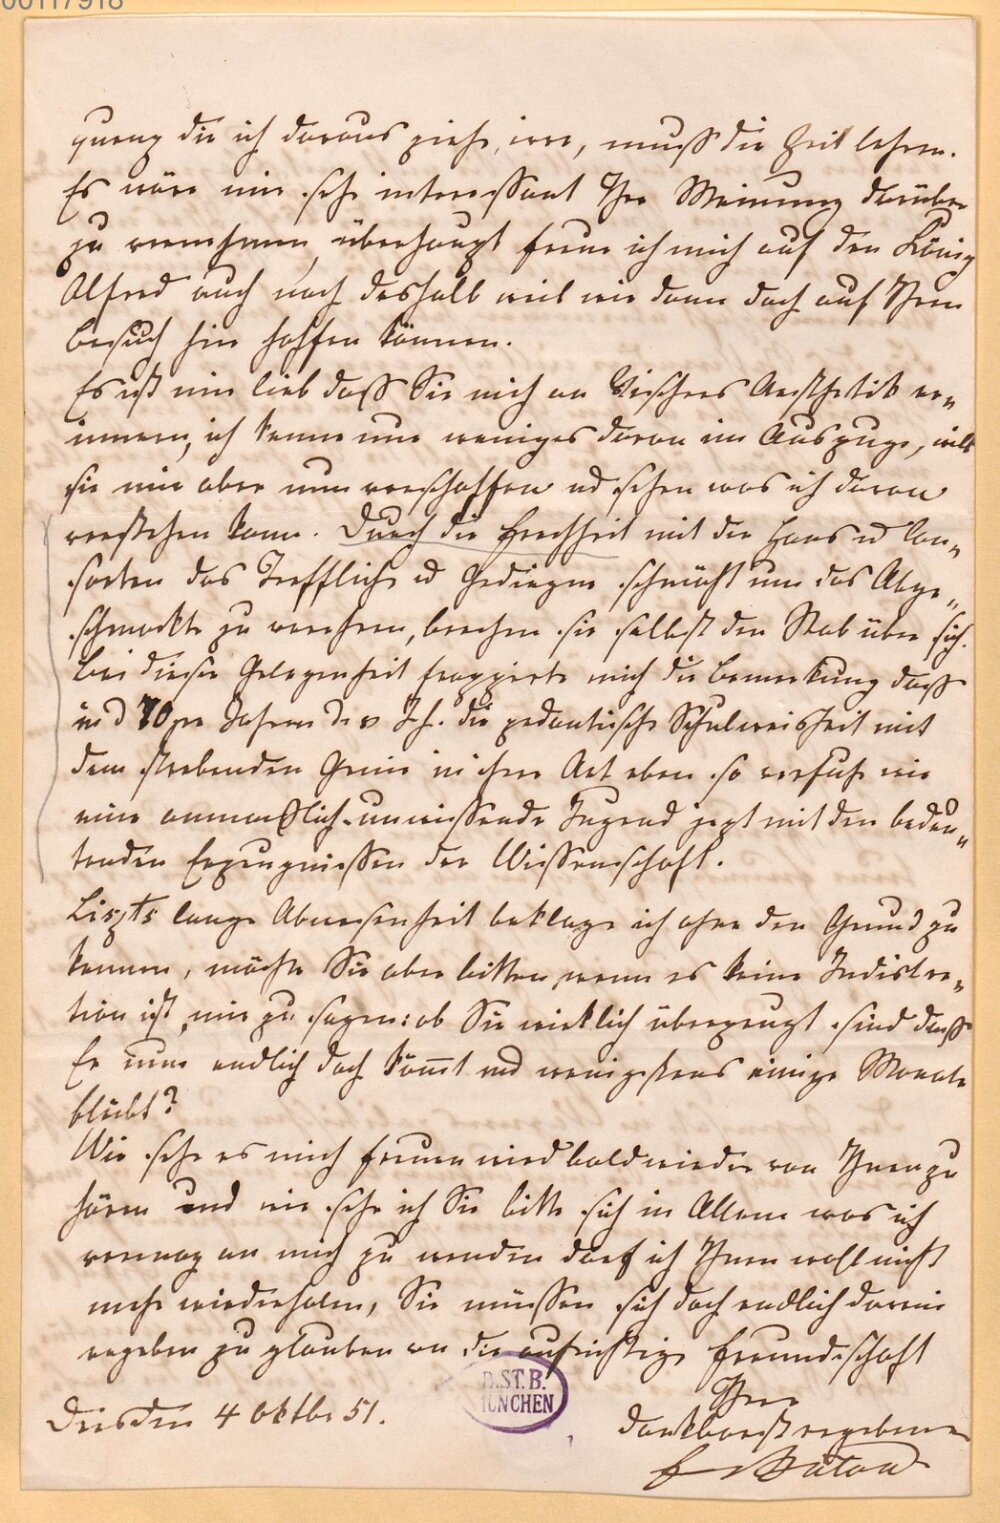 00117918
quenz die ich daraus ziehe, irre, muß die Zeit lehren.
Es wäre mir sehr interessant Ihre Meinung darüber
zu vernehmen, überhaupt freue ich mich auf den König
Alfred auch noch deshalb weil wir dann doch auf Ihren
Besuch hier hoffen können.
Es ist mir lieb daß Sie mich an Vischers Aesthetik er„
innern, ich kenne nur weniges davon im Auszuge, will
sie mir aber nun verschaffen ud sehen was ich davon
verstehen kann. Durch die Frechheit mit der Haas u
sorten das Treffliche ud Gediegne schmäht um das Abge„
schmackte zu verehren, brechen sie selbst den Stab über sich.
Bei dieser Gelegenheit frappirte mich die Bemerkung daß
in d 70ger Jahren d. v Jh. die pedantische Schulweisheit mit
dem strebenden Genie in ihrer Art eben so verfuhr wie
eine anmaßlich-unwissende Jugend jezt mit den bedeu„
tenden Erzeugnissen der Wissenschaft.
Liszts lange Abwesenheit beklage ich ohne den Grund zu
kennen, möchte Sie aber bitten, wenn es keine Indiskre„
tion ist, mir zu sagen: ob Sie wirklich überzeugt sind daß
Er nun endlich doch kömt und wenigstens einige Monate
bleibt?
Wie sehr es mich freuen wird bald wieder von Ihnen zu
hören und wie sehr ich Sie bitte sich in Allem was ich
vermag an mich zu wenden darf ich Ihnen wohl nicht
mehr wiederholen, Sie müssen sich doch endlich darein
ergeben zu glauben an die aufrichtige Freundschaft
Ihrer
dankbarst ergebenen
Dresden 4 Oktbr 51.
B.ST.B.
MÜNCHEN